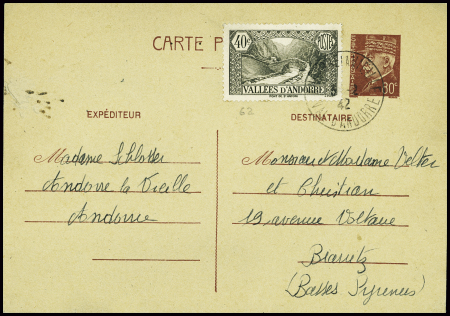 CARTE P
40c
POSTE
VALLÉES D'ANDORRE
80c
42
D'ANDORRE
62
EXPÉDITEUR
DESTINATAIRE
Madame Schlosser
Andorre la Vieille
Andorre
Monsieur et Madame Velten
et Christian
19 avenue Voltaire
Biarritz
(Basses Pyrenees)